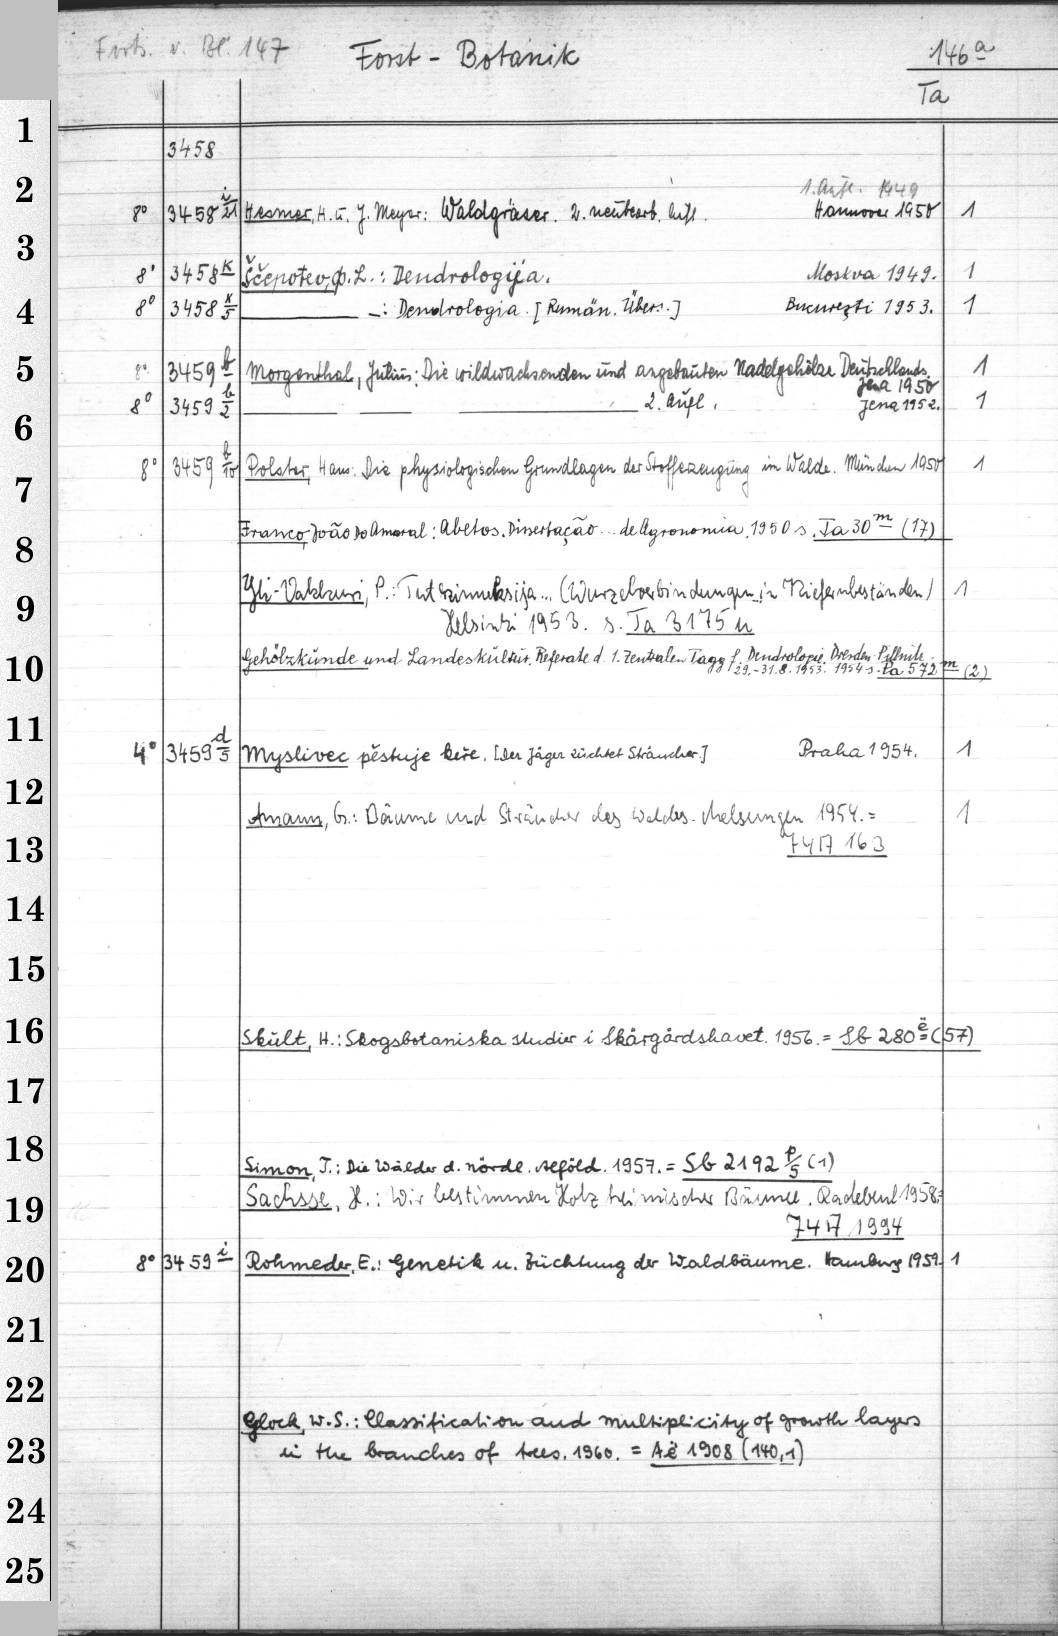 Forts. v. Bl. 147 Forst - Botanik 146 a
Ta
1
3458
1. Aufl. 1949
2
8° 3458 i/21 Hesmer, H. u. J. Meyer: Waldgräser. 2. neubearb. Aufl. Hannover 1950 1
3
8° 3458 k Ščepotev, Ф. L.: Dendrologija. Moskva 1949. 1
4
8° 3458 k/5 — -: Dendrologia. [Rumän. Übers.] Bucureşti 1953. 1
5
8° 3459 b Morgenthal, Julius: Die wildwachsenden und angebauten Nadelgehölze Deutschlands. 1
Jena 1950
8° 3459 b/2 — — — 2. Aufl. Jena 1952. 1
6
8° 3459 b/10 Polster, Hans: Die physiologischen Grundlagen der Stofferzeugung im Walde. München 1950 1
7
Franco, João Do Amaral: Abetos. Dissertação ... de Agronomia. 1950 s. Ta 30 m (17)
8
Yli-Vakkuri, P.: Tutkimuksija... (Wurzelverbindungen in Kiefernbeständen) 1
9
Helsinki 1953. s. Ta 3175 u
10
Gehölzkunde und Landeskultur. Referate d. 1. Zentralen Tagg f. Dendrologie. Dresden-Pillnitz
29.-31.8.1953. 1954 s. Pa 572 m (2)
11
4° 3459 d/5 Myslivec pěstuje keře. [Der Jäger züchtet Sträucher.] Praha 1954. 1
12
Amann, G.: Bäume und Sträucher des Waldes. Melsungen 1954. = 1
13
74 17 163
14
15
16
Skult, H.: Skogsbotaniska studier i Skärgårdshavet. 1956. = Sb 280 ë (57)
17
18
Simon, T.: Die Wälder d. nördl. Alföld. 1957. = Sb 2192 p/5 (1)
Sachsse, H.: Wir bestimmen Holz heimischer Bäume. Radebeul 1958 =
19
74 17 1994
20
8° 3459 i Rohmeder, E.: Genetik u. Züchtung der Waldbäume. Hamburg 1959. 1
21
22
Glock, W.S.: Classification and multiplicity of growth layers
23
in the branches of trees. 1960. = Aë 1908 (140,1)
24
25